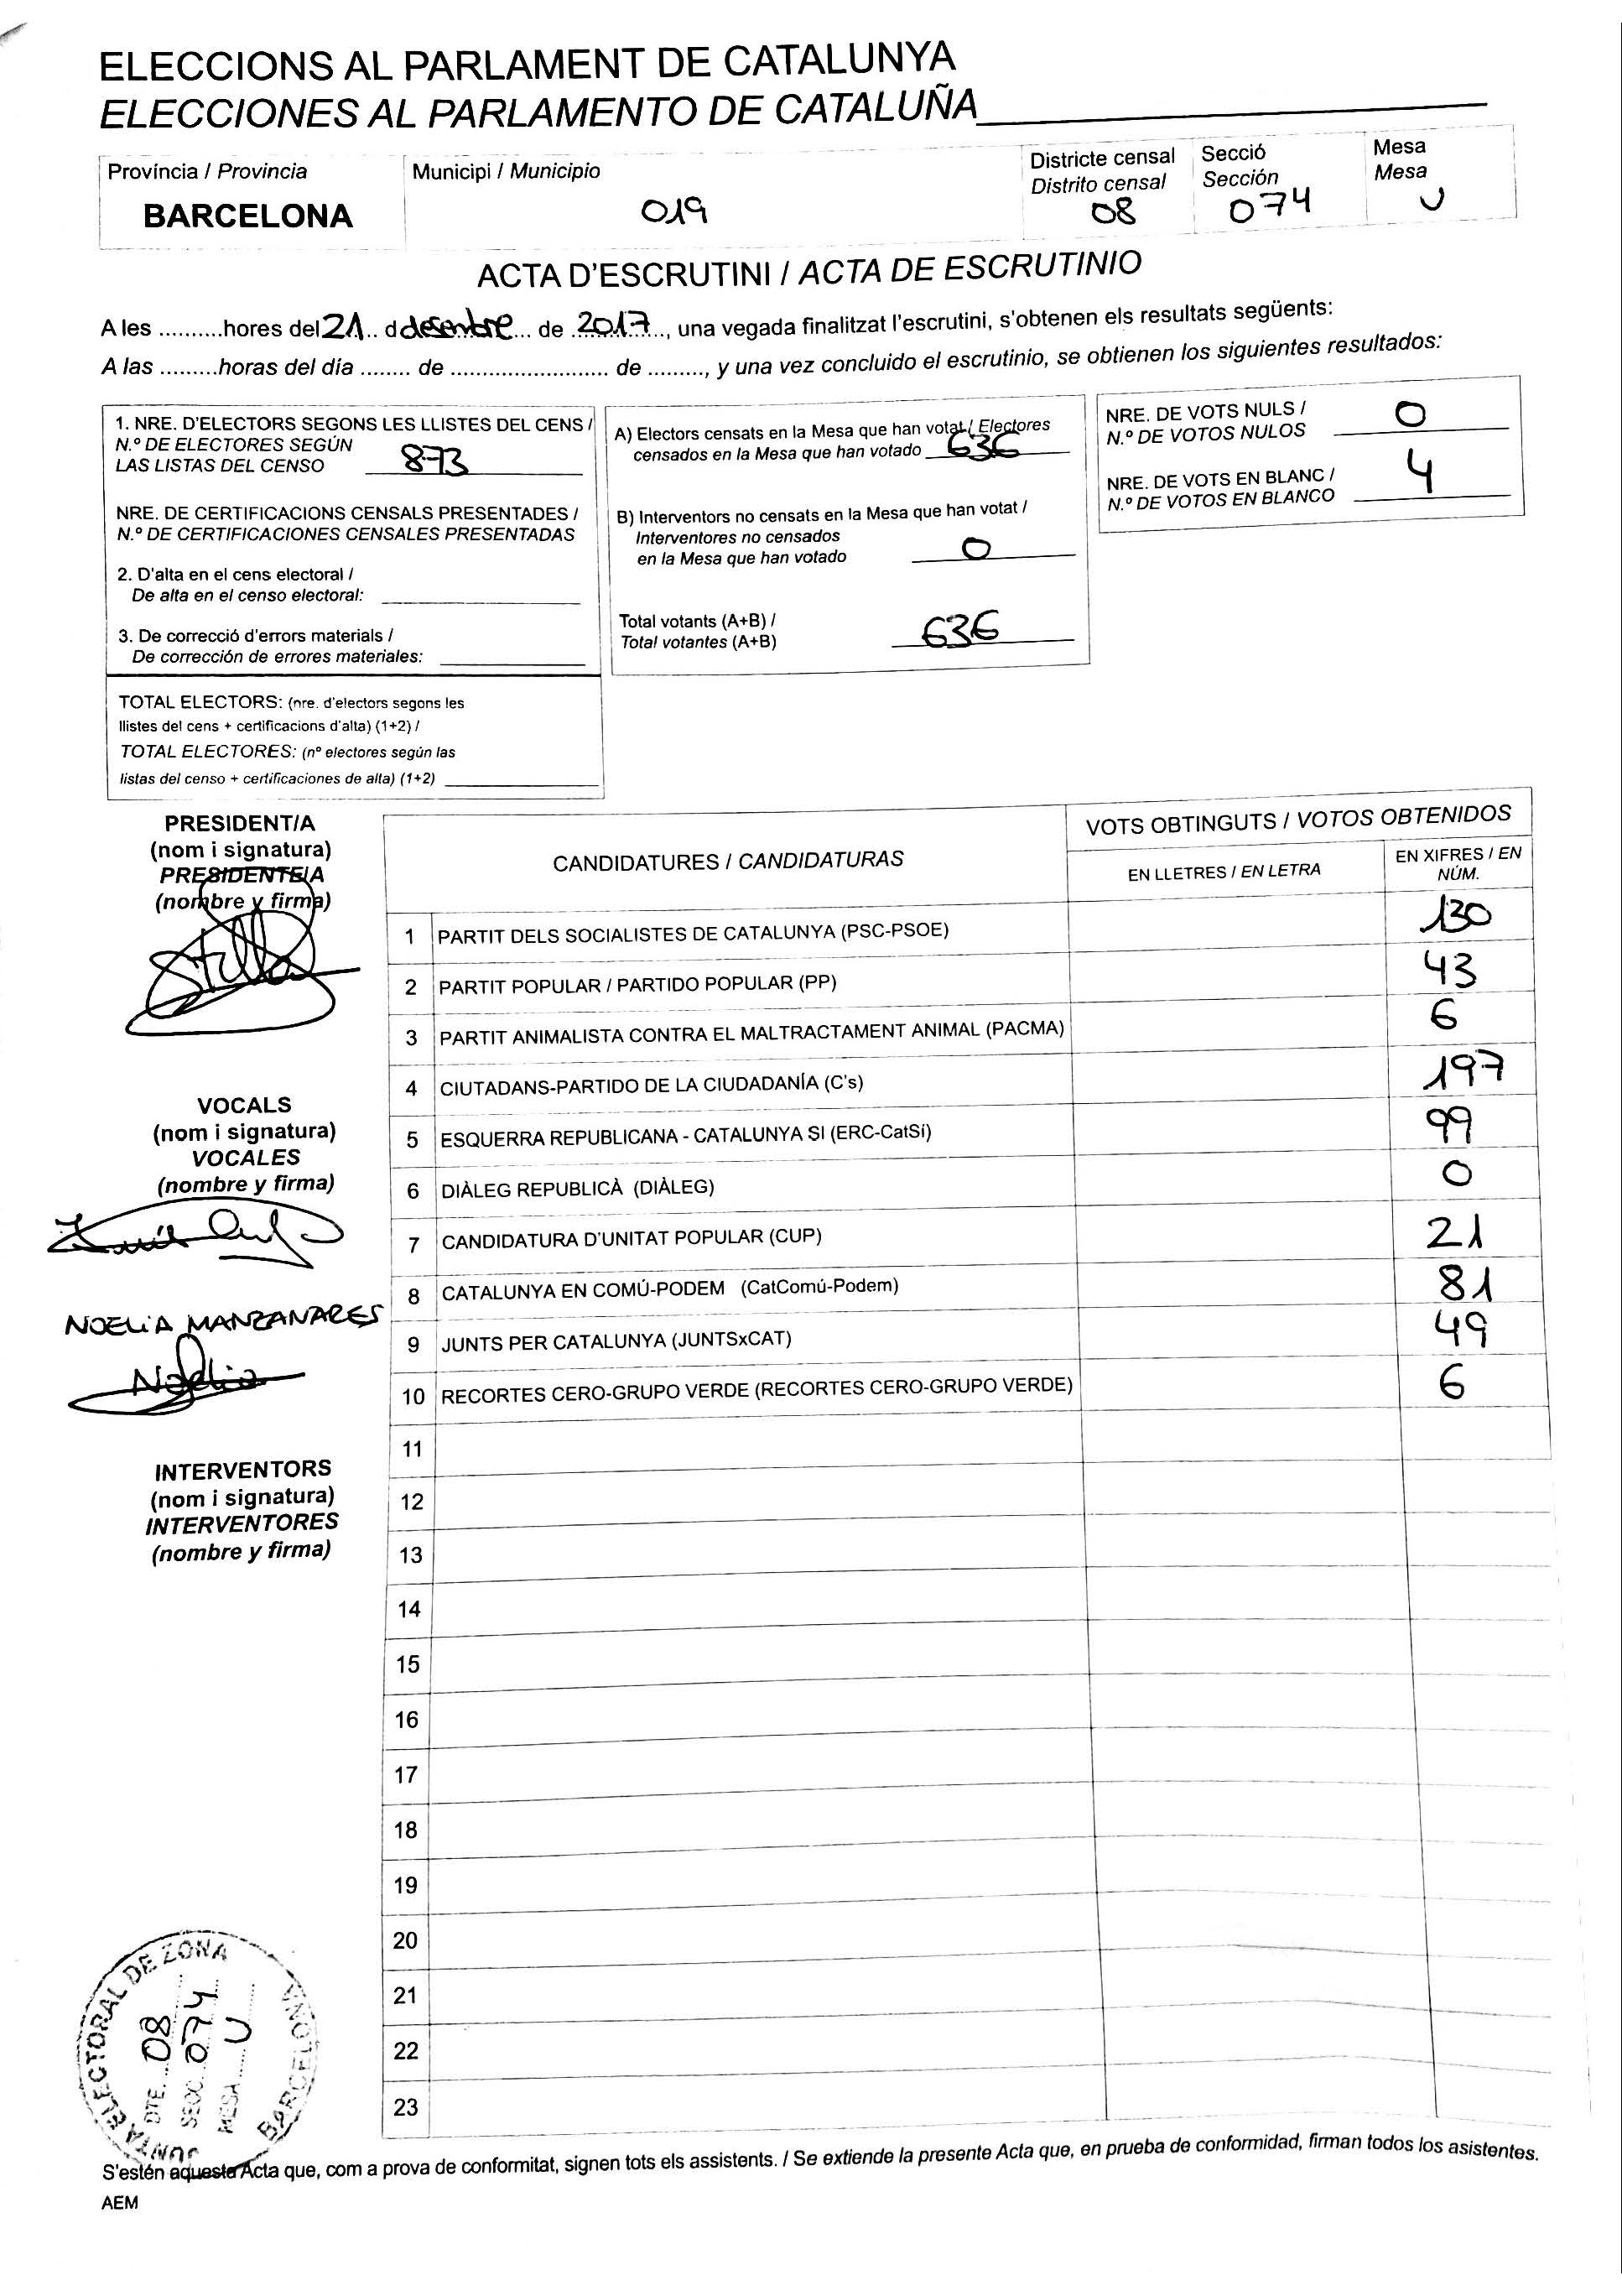 ELECCIONS AL PARLAMENT DE CATALUNYA
ELECCIONES AL PARLAMENTO DE CATALUÑA
Província / Provincia
BARCELONA
Municipi / Municipio
019
Districte censal
Distrito censal
08
Secció
Sección
074
Mesa
Mesa
U
ACTA D'ESCRUTINI / ACTA DE ESCRUTINIO
A les ..........hores del 21.. d desembre... de 2017..., una vegada finalitzat l'escrutini, s'obtenen els resultats següents:
A las .........horas del día ........ de .......................... de ........., y una vez concluido el escrutinio, se obtienen los siguientes resultados:
1. NRE. D'ELECTORS SEGONS LES LLISTES DEL CENS /
N.º DE ELECTORES SEGÚN
LAS LISTAS DEL CENSO 873
NRE. DE CERTIFICACIONS CENSALS PRESENTADES /
N.º DE CERTIFICACIONES CENSALES PRESENTADAS
2. D'alta en el cens electoral /
De alta en el censo electoral:
3. De correcció d'errors materials /
De corrección de errores materiales:
TOTAL ELECTORS: (nre. d'electors segons les
llistes del cens + certificacions d'alta) (1+2) /
TOTAL ELECTORES: (nº electores según las
listas del censo + certificaciones de alta) (1+2)
A) Electors censats en la Mesa que han votat / Electores
censados en la Mesa que han votado 636
B) Interventors no censats en la Mesa que han votat /
Interventores no censados
en la Mesa que han votado 0
Total votants (A+B) /
Total votantes (A+B) 636
NRE. DE VOTS NULS /
N.º DE VOTOS NULOS 0
NRE. DE VOTS EN BLANC /
N.º DE VOTOS EN BLANCO 4
PRESIDENT/A
(nom i signatura)
PRESIDENTE/A
(nombre y firma)
VOCALS
(nom i signatura)
VOCALES
(nombre y firma)
NOELIA MANZANARES
Noelia
INTERVENTORS
(nom i signatura)
INTERVENTORES
(nombre y firma)
CANDIDATURES / CANDIDATURAS
VOTS OBTINGUTS / VOTOS OBTENIDOS
EN LLETRES / EN LETRA
EN XIFRES / EN
NÚM.
1 PARTIT DELS SOCIALISTES DE CATALUNYA (PSC-PSOE) 130
2 PARTIT POPULAR / PARTIDO POPULAR (PP) 43
3 PARTIT ANIMALISTA CONTRA EL MALTRACTAMENT ANIMAL (PACMA) 6
4 CIUTADANS-PARTIDO DE LA CIUDADANÍA (C's) 197
5 ESQUERRA REPUBLICANA - CATALUNYA SI (ERC-CatSí) 99
6 DIÀLEG REPUBLICÀ (DIÀLEG) 0
7 CANDIDATURA D'UNITAT POPULAR (CUP) 21
8 CATALUNYA EN COMÚ-PODEM (CatComú-Podem) 81
9 JUNTS PER CATALUNYA (JUNTSxCAT) 49
10 RECORTES CERO-GRUPO VERDE (RECORTES CERO-GRUPO VERDE) 6
11
12
13
14
15
16
17
18
19
20
21
22
23
JUNTA ELECTORAL DE ZONA
BARCELONA
DTE. 08
SECC. 074
MESA U
S'estén aquesta Acta que, com a prova de conformitat, signen tots els assistents. / Se extiende la presente Acta que, en prueba de conformidad, firman todos los asistentes.
AEM